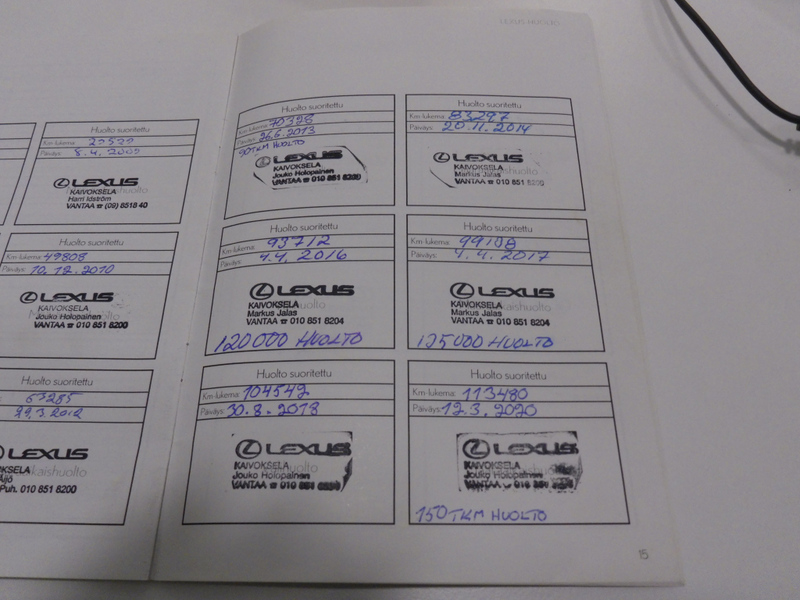 Huolto suoritettu
Km-lukema:
Päiväys: 8.4. 2009
LEXUS
KAIVOKSELA
Harri Idström
VANTAA ☎ (09) 8518 40
Huolto suoritettu
Km-lukema: 49808
Päiväys: 10.12.2010
LEXUS
KAIVOKSELA
Jouko Holopainen
VANTAA ☎ 010 851 8200
Huolto suoritettu
63285
29.3.2012
LEXUS
KAIVOKSELA
Puh. 010 851 8200
Huolto suoritettu
Km-lukema: 70328
Päiväys: 26.6.2013
90TKM HUOLTO
LEXUS
KAIVOKSELA
Jouko Holopainen
VANTAA ☎ 010 851 8200
Huolto suoritettu
Km-lukema: 83297
Päiväys: 20.11.2014
LEXUS
KAIVOKSELA
Markus Jalas
VANTAA ☎ 010 851 8200
Huolto suoritettu
Km-lukema: 93712
Päiväys: 4.4. 2016
LEXUS
KAIVOKSELA
Markus Jalas
VANTAA ☎ 010 851 8204
120000 HUOLTO
Huolto suoritettu
Km-lukema: 99108
Päiväys: 4.4. 2017
LEXUS
KAIVOKSELA
Markus Jalas
VANTAA ☎ 010 851 8204
135000 HUOLTO
Huolto suoritettu
Km-lukema: 104542
Päiväys: 30.8.2018
LEXUS
KAIVOKSELA
Jouko Holopainen
VANTAA ☎ 010 851
Huolto suoritettu
Km-lukema: 113480
Päiväys: 12.3.2020
LEXUS
KAIVOKSELA
Jouko Holopainen
VANTAA 010 851
150TKM HUOLTO
15